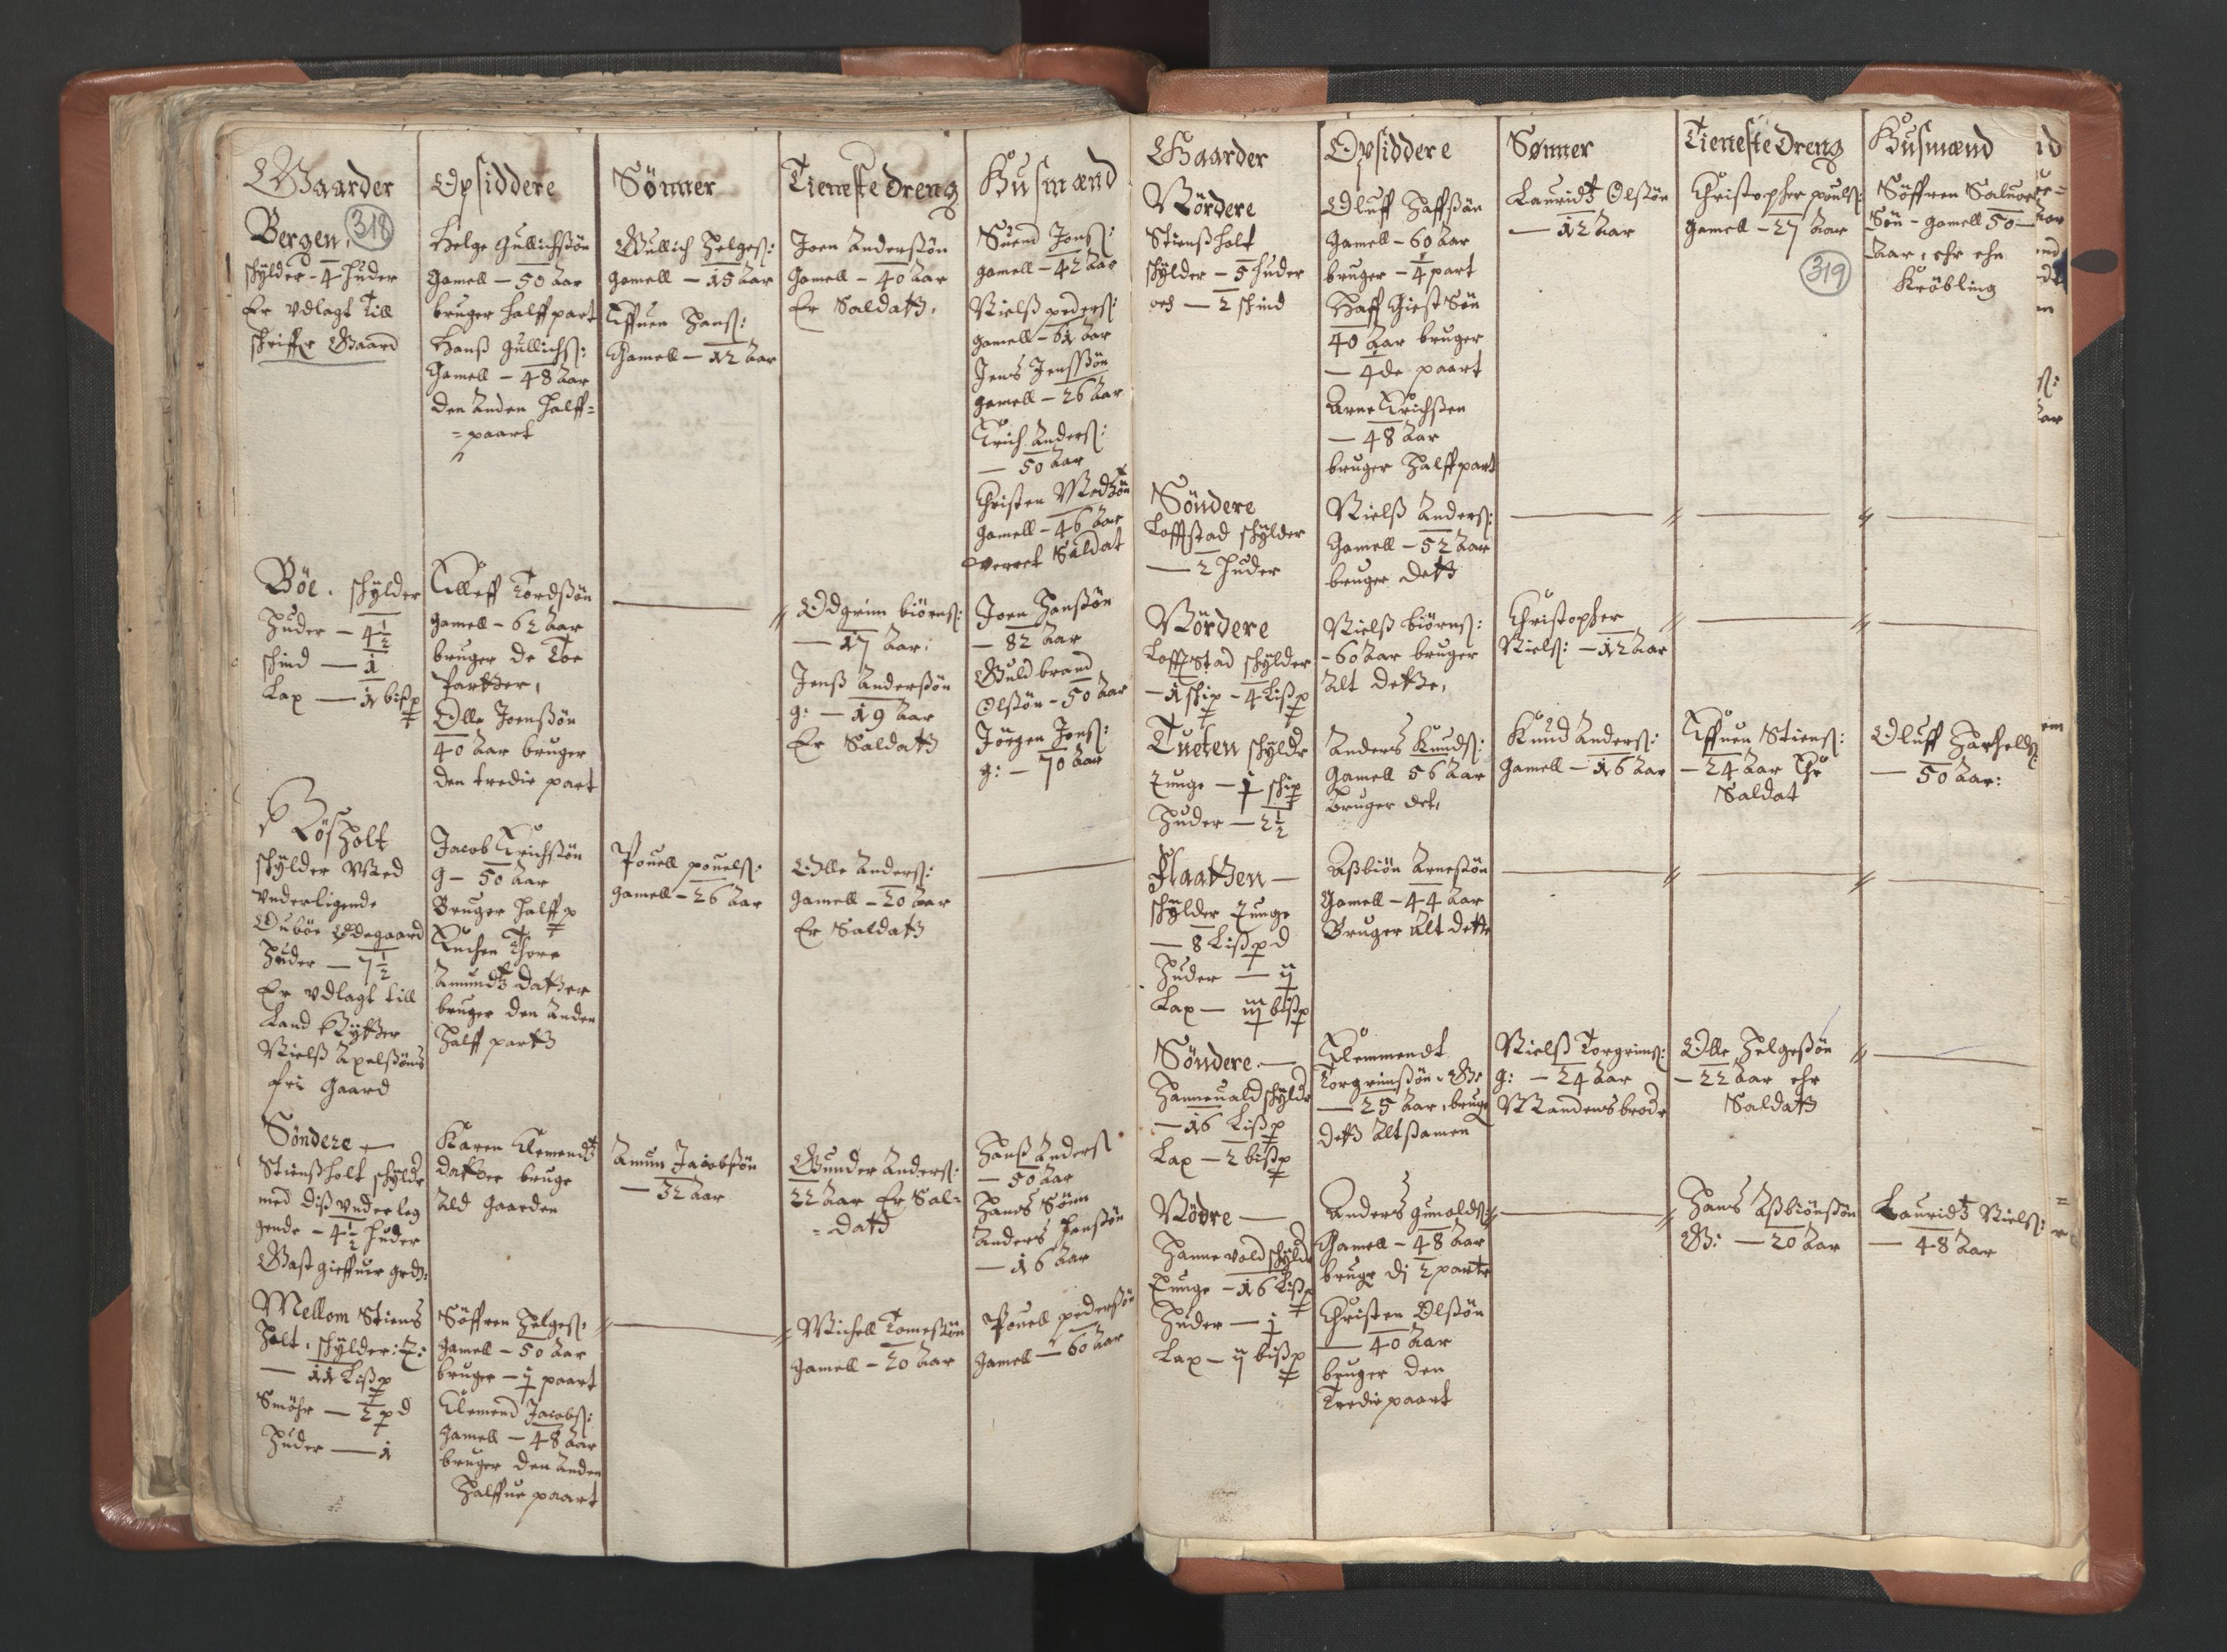 Gaarder
Bergen. 318
schÿlder - 4 huder
Er vdlagt till
schriffr Gaard
Böe. schÿlder
Huder - 4½
schind - 1
Lax - 1 bißp
Rösholt
schÿlder Med
vnderligende
Duböe Ødegaard
Huder - 7½
Er vdlagt till
Land Rÿtter
Nielß Axelßöns
frj Gaard
Söndere
Stiensholt schÿldr
med diß vnderleg
gende - 4½ huder
Gast gieffuer grd:
Mellom Stiens
Holt, schÿlder: T:
- 11 Lißp
Smöhr - 2 pd
Huder - 1
Opsiddere
Helge Gullichßön
Gamell - 50 Aar
bruger halffpart
Hanß Gullichß:
Gamell - 48 Aar
den Anden halff=
=paart
Elleff Tordßön
Gamell - 62 Aar
bruger de Toe
Parther,
Olle Joenßön
40 Aar bruger
den tredie part
Jacob Erichßön
g - 50 Aar
Bruger halff p
Enchen Thore
Amundtz datter
bruger den Anden
Halff partt
Karen Clemendtz
datter bruge
Ald Gaarden
Söffren Helgeß:
Gamell - 50 Aar
bruger - ½ paart
Clemend Jacobß:
Gamell - 48 Aar
bruger den Anden
Halffue paart
Sönner
Gullich Helgeß:
Gamell - 15 Aar
Effuen Hanß:
Gamell - 12 Aar
Pouell pouelß:
Gamell - 26 Aar
Amun Jacobßön
- 32 Aar
Tieneste Dreng
Joen Anderßön
Gamell - 40 Aar
Er Saldatt.
Odgrim biörnß:
- 17 Aar:
Jenß Anderßön
g: - 19 Aar
Er Saldatt
Olle Anderß:
Gamell - 20 Aar
Er Saldatt
Gunder Anderß:
22 Aar Er Sal=
=datt
Michell Tomeßön
Gamell - 20 Aar
Husmænd
Suend Jonß:
gamell - 42 Aar
Nielß pederß:
gamell - 61 Aar
Jens Jenßön
gamell - 26 Aar
Erich Anderß:
- 50 Aar
Christen Madtzön
Gamell - 46 Aar
verret Saldat
Joen Hanßön
- 82 Aar
Guldbrand
Olßön - 50 Aar
Jörgen Jonß:
g: - 70 Aar
Hanß Anderß
- 50 Aar
Hans Sön
Anders Hanßön
- 16 Aar
Pouell pederßön
Gamell - 60 Aar
Gaarder
Nördere
Stienßholt
schÿlder - 5 huder
och - 2 schind
Söndere
Loffstad schÿlder
- 2 huder
Nördere
Loffstad schÿlder
- 1 schip - 4 Lißp
Tueten schÿldr
Tunge - 1 schip
Huder - 2½
Flaatten
schÿlder Tunge
- 8 Lißpd
Huder - ij
Lax - iij bißp
Söndere
Hanneuald schÿldr
- 16 Lißp
Lax - 2 bißp
Nödre
Hannevold schÿldr
Tunge - 16 Lißp
Huder - j
Lax - ij bißp
Opsiddere
Oluff Haffßön
Gamell - 60 Aar
bruger - ¼ part
Haff Giest Sön
40 Aar bruger
- 4de paart
Arne Erichßen
- 48 Aar
bruger Halffpart
Nielß Anderß:
Gamell - 52 Aar
bruger dett
Nielß biörnß:
- 60 Aar bruger
Alt dette,
Anders Knudß:
Gamell 56 Aar
Bruger det,
Aßbiön Arneßön
Gamell - 44 Aar
Bruger Alt dette
Clemmendt
Torgrimßön, Gr
- 25 Aar, bruge
dett Altsamen
Anders Gunoldß:
Gamell - 48 Aar
bruge dj 2 parte
Christen Olßön
- 40 Aar
bruger den
Tredie paart
Sønner
Lauridtz Olßön
- 12 Aar
Christopher
Nielß: - 12 Aar
Knud Anderß:
Gamell - 16 Aar
Nielß Torgrimß:
g: - 24 Aar
Mandens brodr
Tieneste Dreng
Christopher pouelß:
Gamell - 27 Aar
319
Effuen Stienß:
- 24 Aar Ehr
Saldat
Olle Helgeßön
- 22 Aar ehr
Saldatt
Hans Aßbiönßön
G: - 20 Aar
Husmænd
Söffren Saluor
Sön - Gamell 50
Aar, ehr ehn
Kröbling
Oluff
- 50 Aar:
Lauridtz Nielß:
- 48 Aar